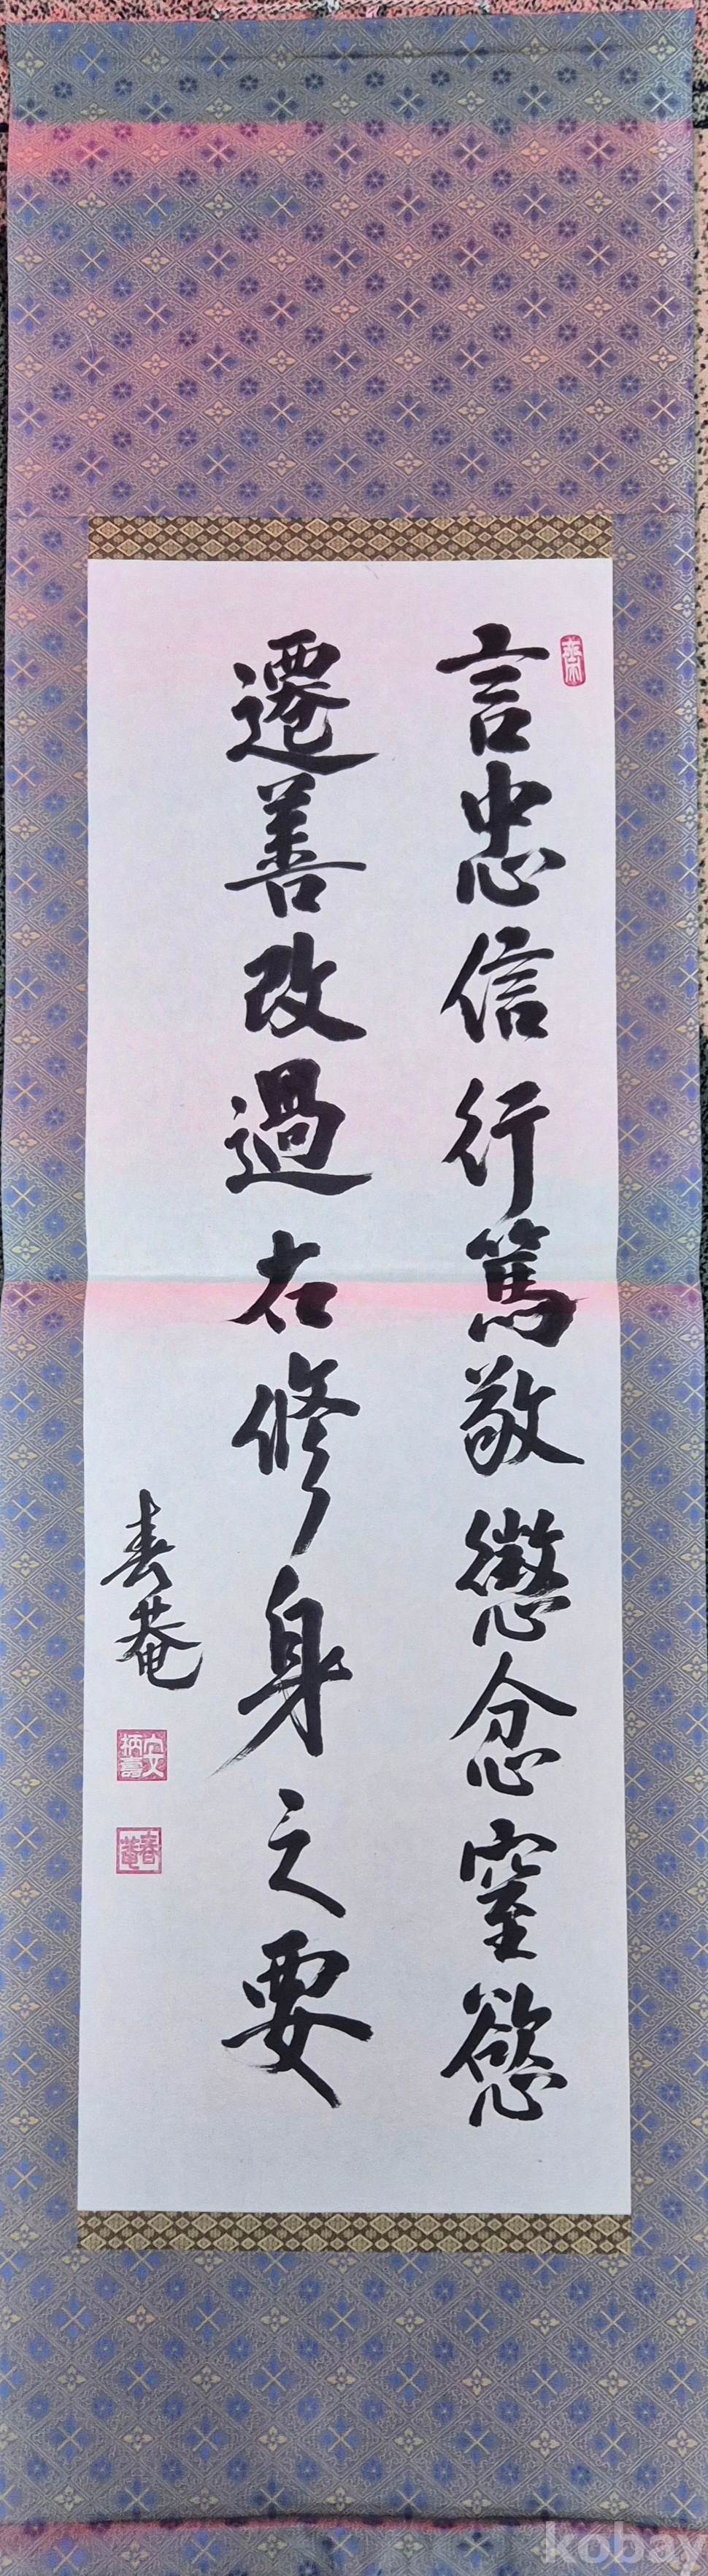 言忠信行篤敬懲忿窒慾
遷善改過右修身之要
春菴
春菴
kobay